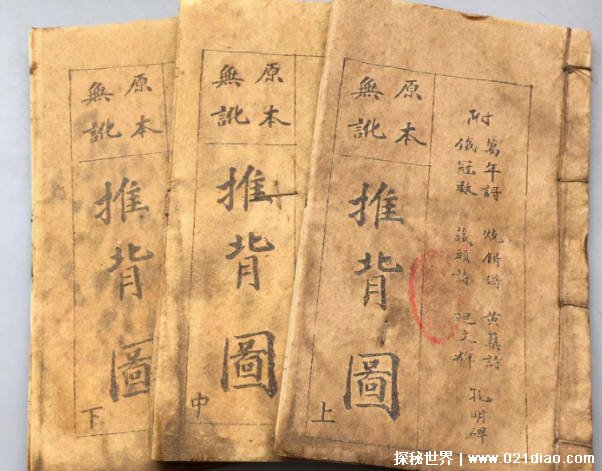 附
萬年詩 燒餅 黃蘗詩 孔明碑
鐵冠數 藏頭詩
原本
無訛
推背圖
上
原本
無訛
推背圖
中
原本
無訛
推背圖
下
探秘世界｜www.021diao.com